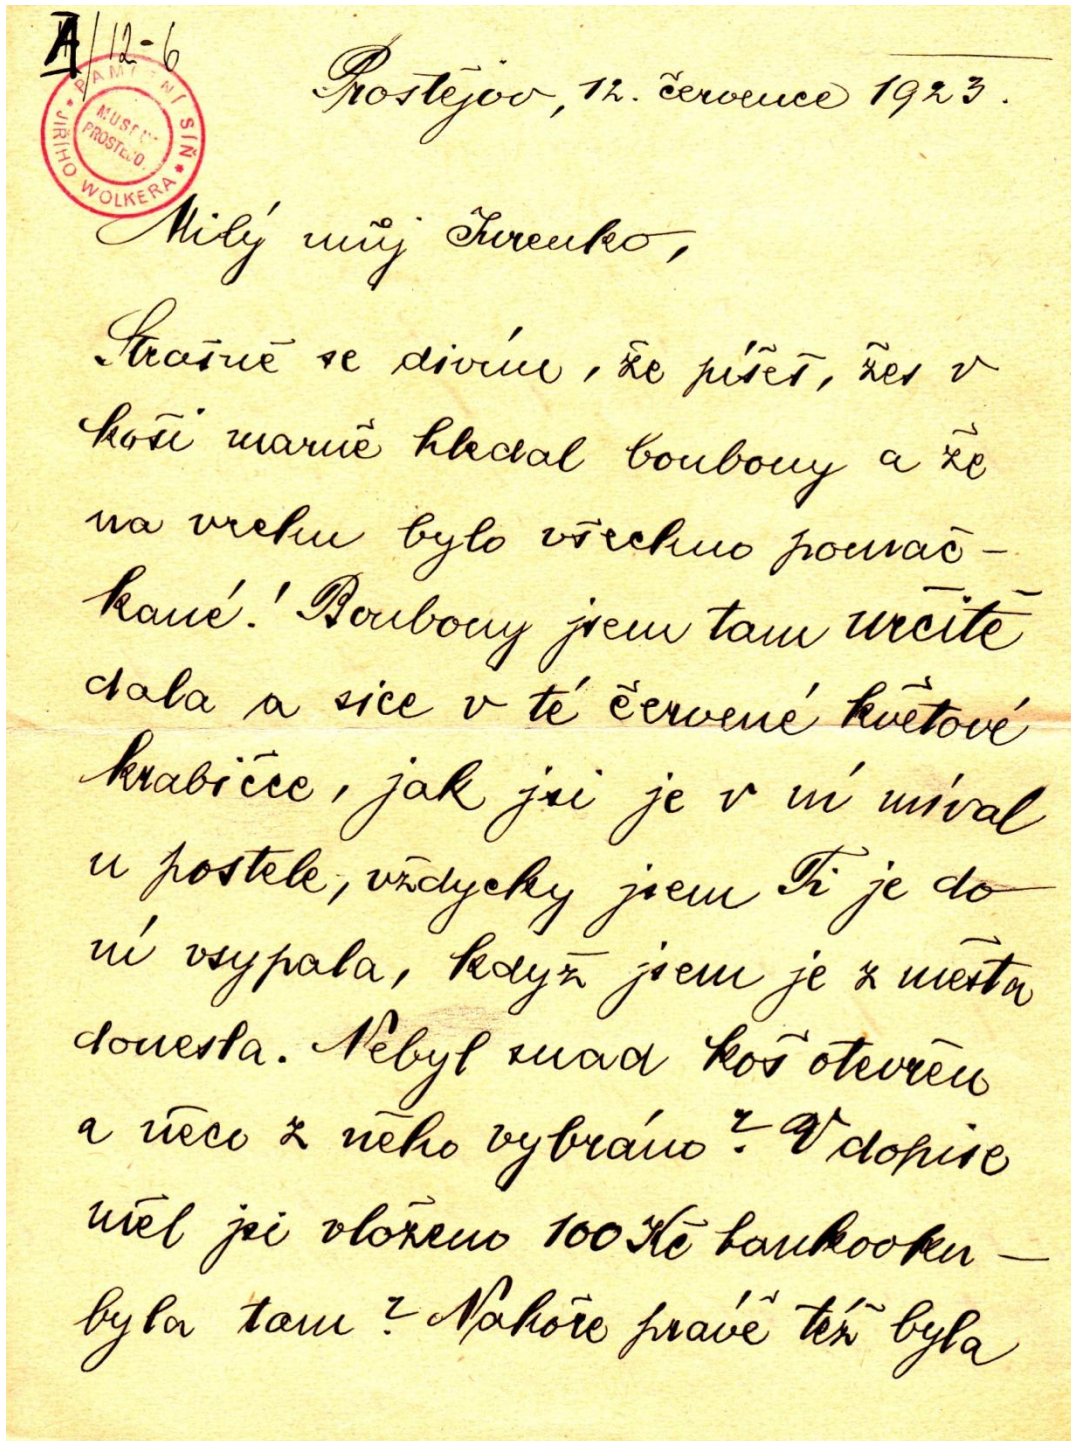 A/12-6
PAMĚTNÍ SÍŇ
JIŘÍHO WOLKERA
MUSEUM
PROSTĚJO.
Prostějov, 12. července 1923.
Milý můj Jurenko,
Strašně se divím, že píšeš, žes v
koši marně hledal bonbony a že
na vrchu bylo všechno pomač-
kané! Bonbony jsem tam určitě
dala a sice v té červené květové
krabičce, jak jsi je v ní míval
u postele, vždycky jsem Ti je do
ní vsypala, když jsem je z města
donesla. Nebyl snad koš otevřen
a něco z něho vybráno? V dopise
měl jsi vloženo 100 Kč bankovku –
byla tam? Nahoře právě též byla